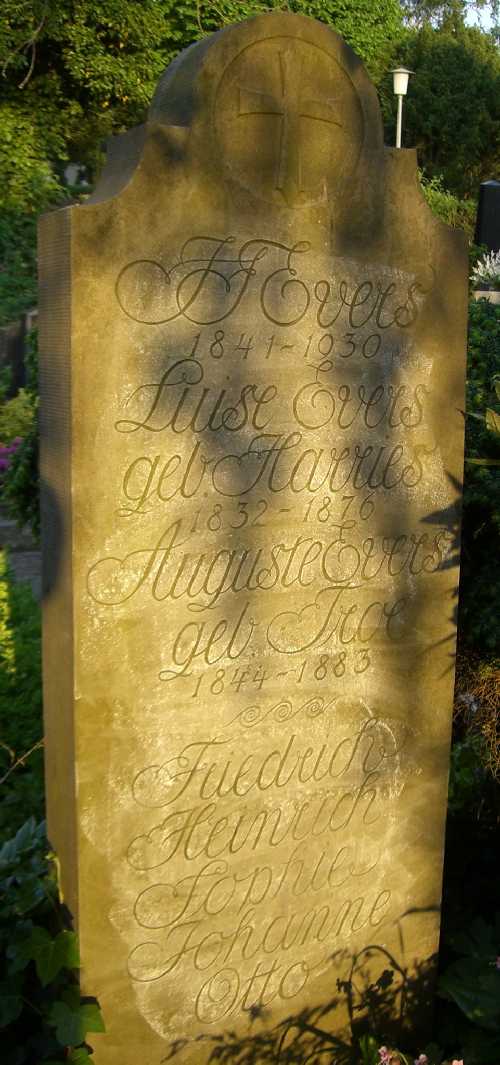 H F Evers
1841-1930
Luise Evers
geb. Harries
1832-1876
Auguste Evers
geb. Troe
1844-1883
Friedrich
Heinrich
Sophie
Johanne
Otto